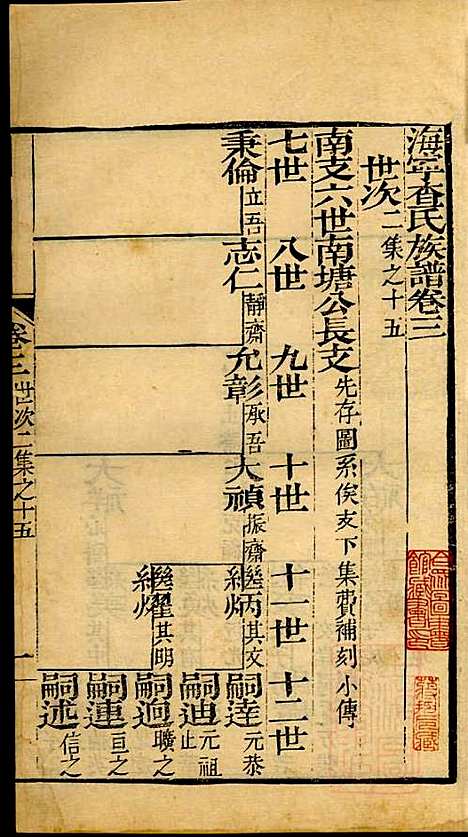 海寧查氏族譜卷三
世次二集之十五
南支六世南塘公長支 先存圖系俟支下集費補刻小傳
七世 八世 九世 十世 十一世 十二世
秉倫 立吾 志仁 靜齋 允彰 承吾 大禎 振齋 繼炳 其文 嗣達 元恭
嗣迪 元祖 止
繼燿 其明 嗣迥 曠之
嗣連 亘之
嗣述 信之
卷三 世次二集之十五 一